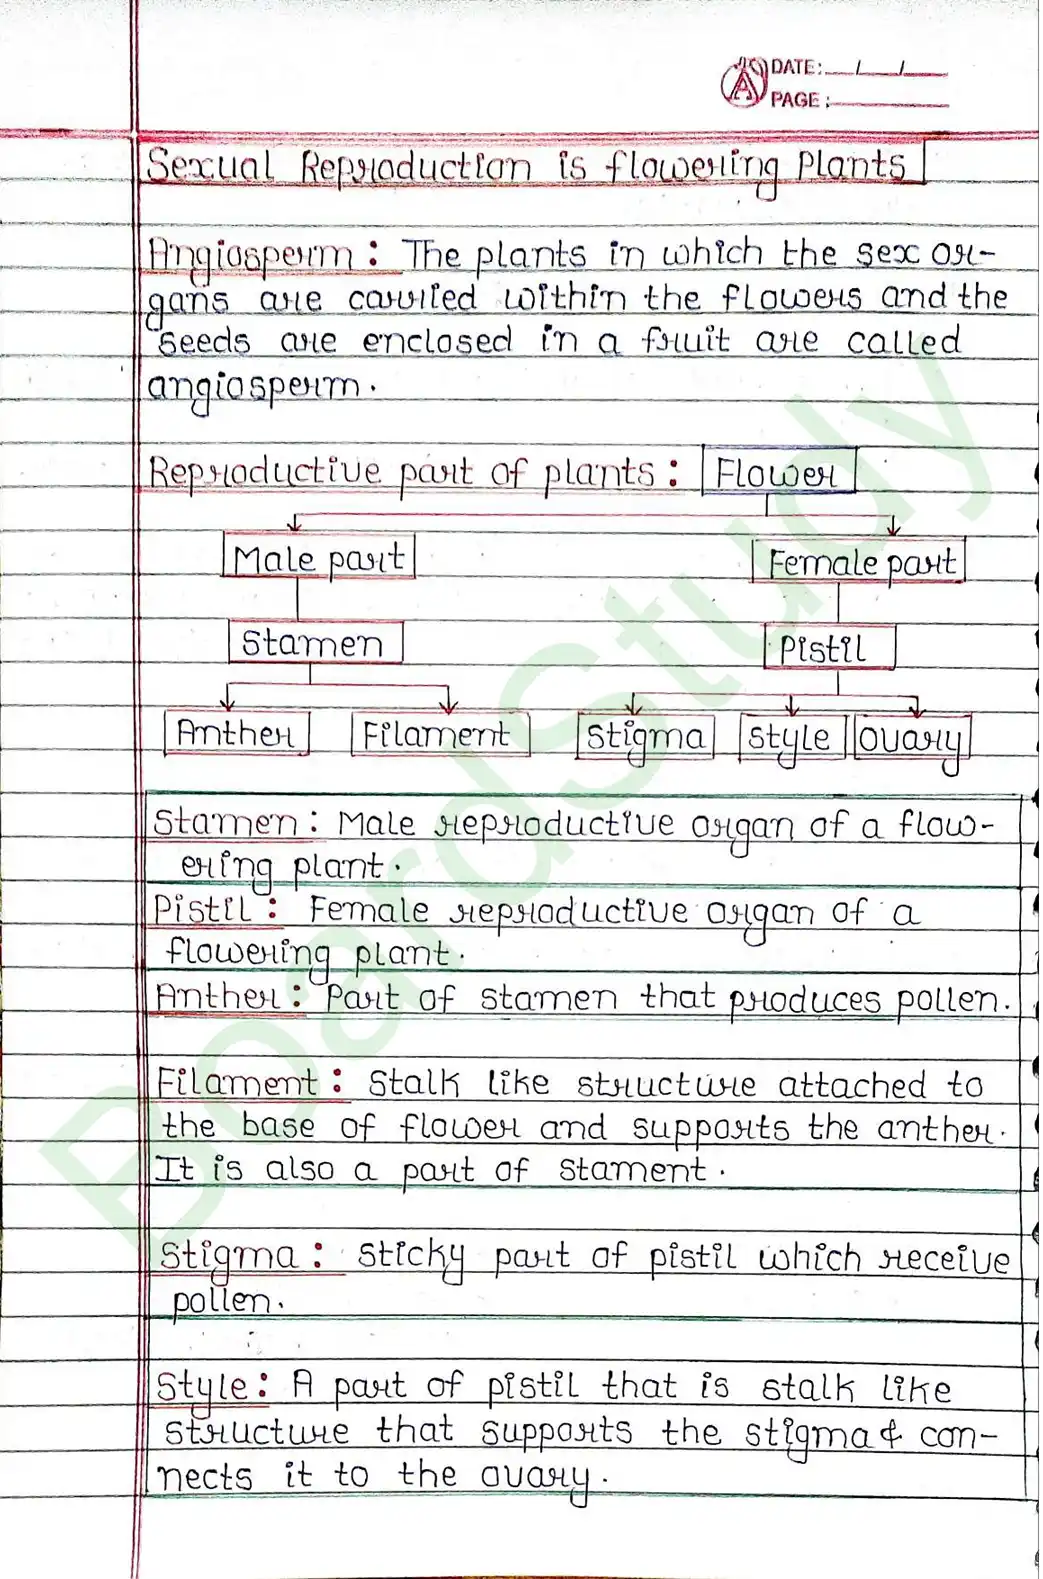 DATE: / /
PAGE:
Sexual Reproduction is flowering Plants
Angiosperm : The plants in which the sex or-
gans are carried within the flowers and the
seeds are enclosed in a fruit are called
angiosperm.
Reproductive part of plants : Flower
Male part Female part
Stamen Pistil
Anther Filament Stigma Style Ovary
Stamen : Male reproductive organ of a flow-
ering plant.
Pistil : Female reproductive organ of a
flowering plant.
Anther : Part of stamen that produces pollen.
Filament : Stalk like structure attached to
the base of flower and supports the anther.
It is also a part of stament.
Stigma : Sticky part of pistil which receive
pollen.
Style : A part of pistil that is stalk like
structure that supports the stigma & con-
nects it to the ovary.
BoardStudy